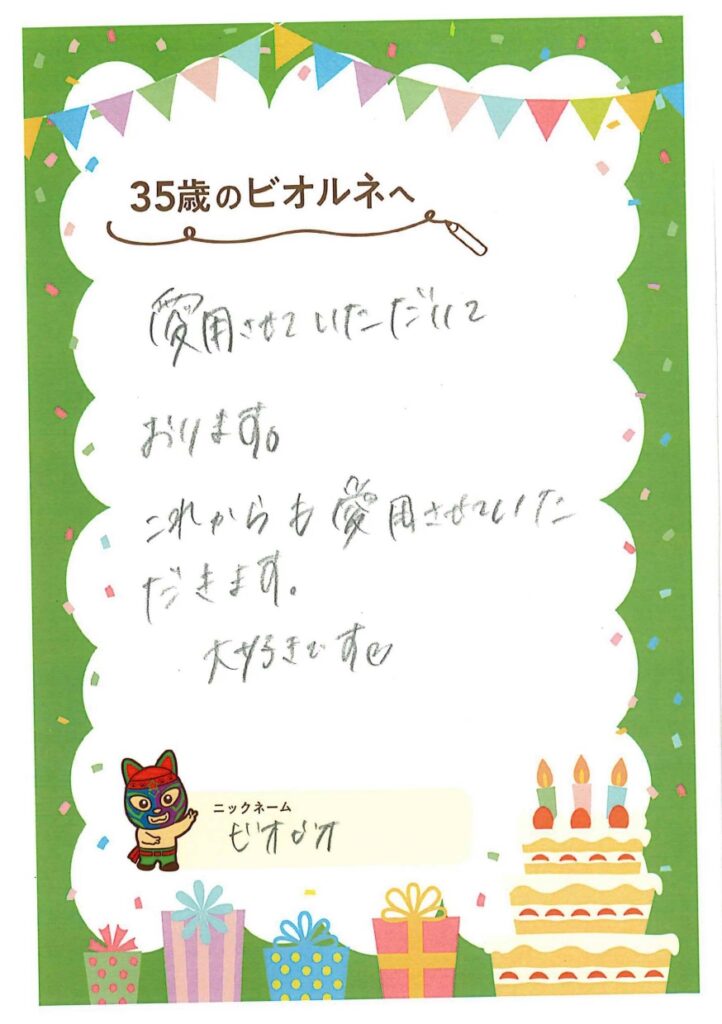 35歳のビオルネへ
愛用させていただいて
おります。
これからも愛用させていた
だきます。
大好きです♡
ニックネーム
ビオビオ